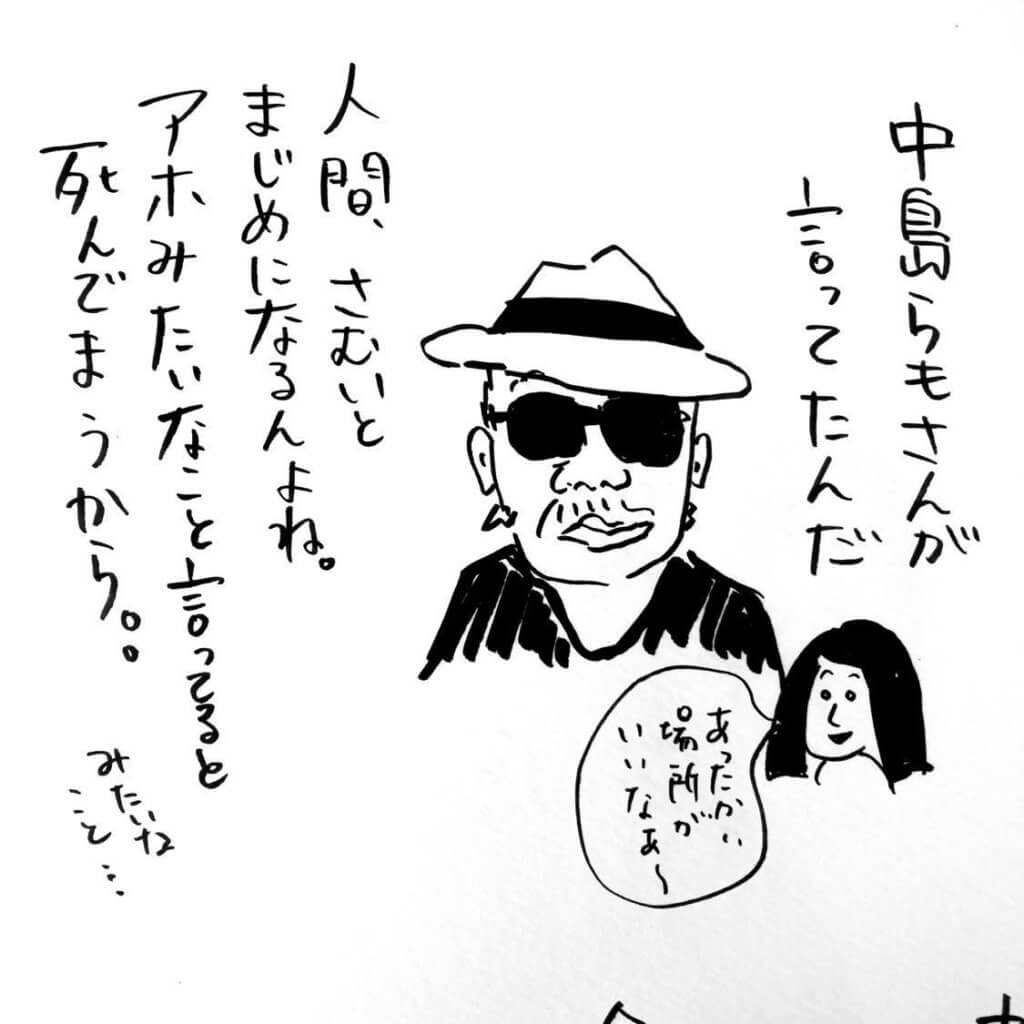 中島らもさんが
言ってたんだ
人間、さむいと
まじめになるんよね。
アホみたいなこと言ってると
死んでまうから。。
みたいな
こと…
あったかい
場所が
いいなぁ〜